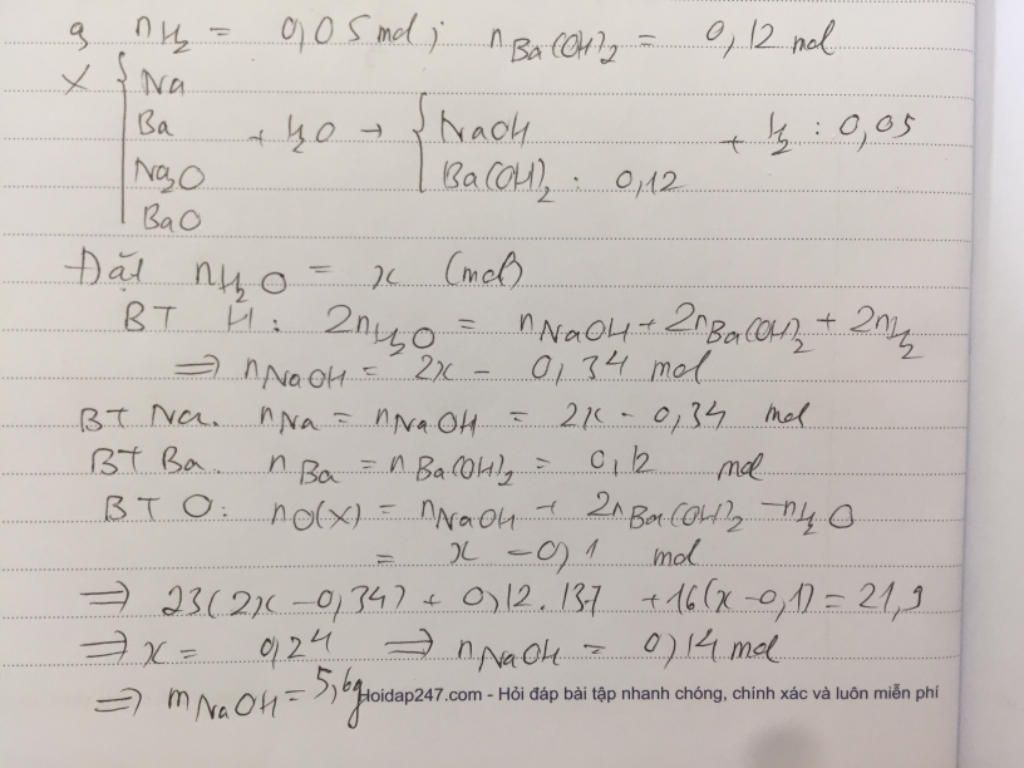 9 nH₂ = 0,05 mol ; nBa(OH)₂ = 0,12 mol
X { Na
Ba + H₂O → { NaOH + H₂ : 0,05
Na₂O Ba(OH)₂ : 0,12
BaO
Đặt nH₂O = x (mol)
BT H : 2nH₂O = nNaOH + 2nBa(OH)₂ + 2nH₂
⇒ nNaOH = 2x - 0,34 mol
BT Na. nNa = nNaOH = 2x - 0,34 mol
BT Ba. nBa = nBa(OH)₂ = 0,12 mol
BT O : nO(X) = nNaOH + 2nBa(OH)₂ - nH₂O
= x - 0,1 mol
⇒ 23(2x - 0,34) + 0,12.137 + 16(x - 0,1) = 21,9
⇒ x = 0,24 ⇒ nNaOH = 0,14 mol
⇒ mNaOH = 5,6g
Hoidap247.com - Hỏi đáp bài tập nhanh chóng, chính xác và luôn miễn phí